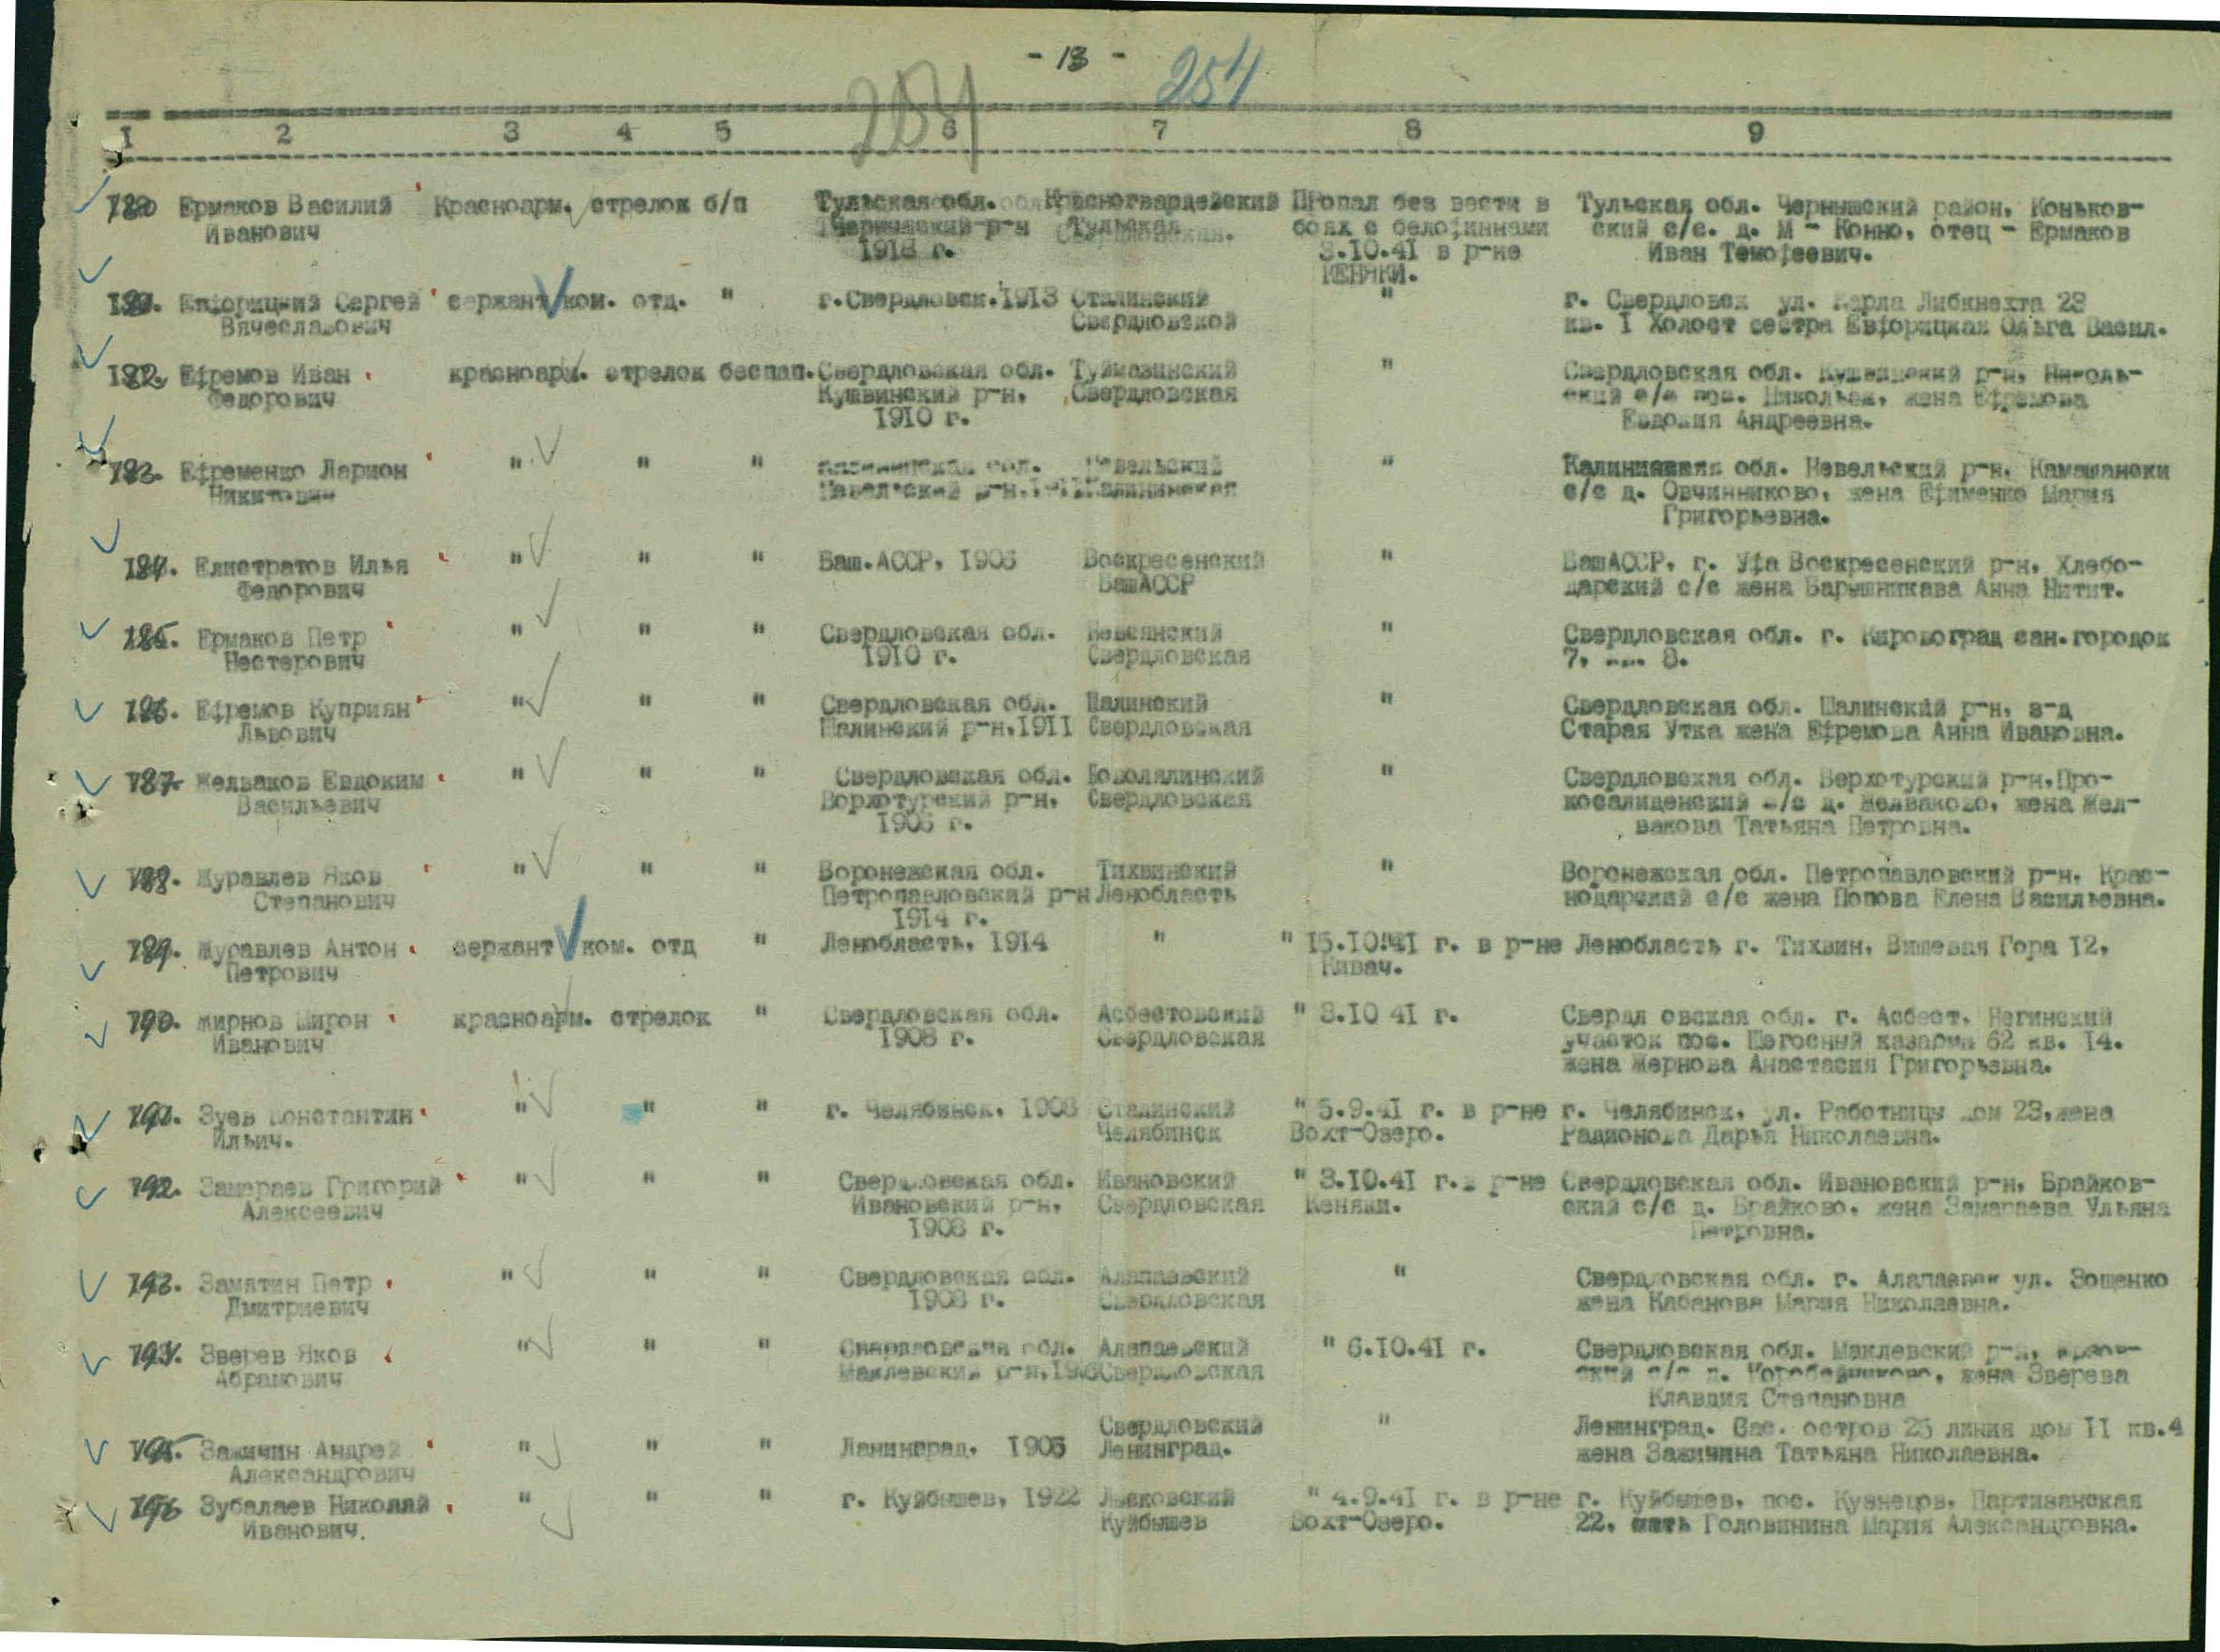 - 13 - 254
204
I 2 3 4 5 6 7 8 9
180 Ермаков Василий Красноарм. стрелок б/п Тульская обл. Красногвардейский Пропал без вести в Тульская обл. Чернышский район, Коньков-
Иванович Чернышский р-н Тульская боях с белофиннами ский с/с. д. М - Конно, отец - Ермаков
1918 г. 3.10.41 в р-не Иван Темофеевич.
КЕНЯКИ.
181. Евфорицкий Сергей сержант ком. отд. " г.Свердловск.1913 Сталинский " г. Свердловск ул. Карла Либкнехта 28
Вячеславович Свердловской кв. I Холост сестра Евфорицкая Ольга Васил.
182. Ефремов Иван красноарм. стрелок беспап. Свердловская обл. Туймазинский " Свердловская обл. Кушвинский р-н, Николь-
Федорович Кушвинский р-н, Свердловская ский с/с пос. Никольск, жена Ефремова
1910 г. Евдокия Андреевна.
183. Ефременко Ларион " " " Калининская обл. Невельский " Калининская обл. Невельский р-н, Камашански
Никитович Невельский р-н. Калининская с/с д. Овчинниково, жена Ефименко Мария
Григорьевна.
184. Елистратов Илья " " " Баш.АССР, 1905 Воскресенский " БашАССР, г. Уфа Воскресенский р-н, Хлебо-
Федорович БашАССР дарский с/с жена Барышникава Анна Нитит.
185. Ермаков Петр " " " Свердловская обл. Невьянский " Свердловская обл. г. Кировоград сан.городок
Нестерович 1910 г. Свердловская 7, 8.
186. Ефремов Куприян " " " Свердловская обл. Шалинский " Свердловская обл. Шалинский р-н, з-д
Львович Шалинский р-н,1911 Свердловская Старая Утка жена Ефремова Анна Ивановна.
187 Желваков Евдоким " " " Свердловская обл. Новолялинский " Свердловская обл. Верхотурский р-н,Про-
Васильевич Ворхотурский р-н, Свердловская косалиденский с/с д. Желваково, жена Жел-
1905 г. вакова Татьяна Петровна.
188. Журавлев Яков " " " Воронежская обл. Тихвинский " Воронежская обл. Петропавловский р-н, Крас-
Степанович Петропавловский р-н Ленобласть нодарский с/с жена Попова Елена Васильевна.
1914 г.
189. Журавлев Антон сержант ком. отд " Ленобласть, 1914 " " 15.10.41 г. в р-не Ленобласть г. Тихвин, Вишевая Гора 12,
Петрович Кивач.
190. Жирнов Мирон красноарм. стрелок " Свердловская обл. Асбестовский " 3.10 41 г. Свердл овская обл. г. Асбест, Негинский
Иванович 1908 г. Свердловская участок пос. Шегосный казарма 62 кв. 14.
жена Жернова Анастасия Григорьевна.
191. Зуев Константин " " " г. Челябинск, 1908 Сталинский " 5.9.41 г. в р-не г. Челябинск, ул. Работницы дом 23,жена
Ильич. Челябинск Вохт-Озеро. Радионова Дарья Николаевна.
192. Замараев Григорий " " " Свердловская обл. Ивановский " 3.10.41 г.в р-не Свердловская обл. Ивановский р-н, Брайков-
Алексеевич Ивановский р-н, Свердловская Кеняки. ский с/с д. Брайково, жена Замараева Ульяна
1908 г. Петровна.
193. Замятин Петр " " " Свердловская обл. Алапаевский " Свердловская обл. г. Алапаевск ул. Зощенко
Дмитриевич 1908 г. Свердловская жена Кабанова Мария Николаевна.
194. Зверев Яков " " " Свердловская обл. Алапаевский " 6.10.41 г. Свердловская обл. Маклевский р-н,
Абрамович Маклевский р-н, Свердловская ский с/с д. Коробейниково, жена Зверева
Клавдия Степановна
Свердловский " Ленинград. Вас. остров 25 линия дом II кв.4
195. Зажичин Андрей " " " Ланинград, 1905 Ленинград. жена Зажичина Татьяна Николаевна.
Александрович
196 Зубалаев Николай " " " г. Куйбышев, 1922 Лысковский " 4.9.41 г. в р-не г. Куйбышев, пос. Кузнецов, Партизанская
Иванович. Куйбышев Вохт-Озеро. 22, мать Головинина Мария Александровна.